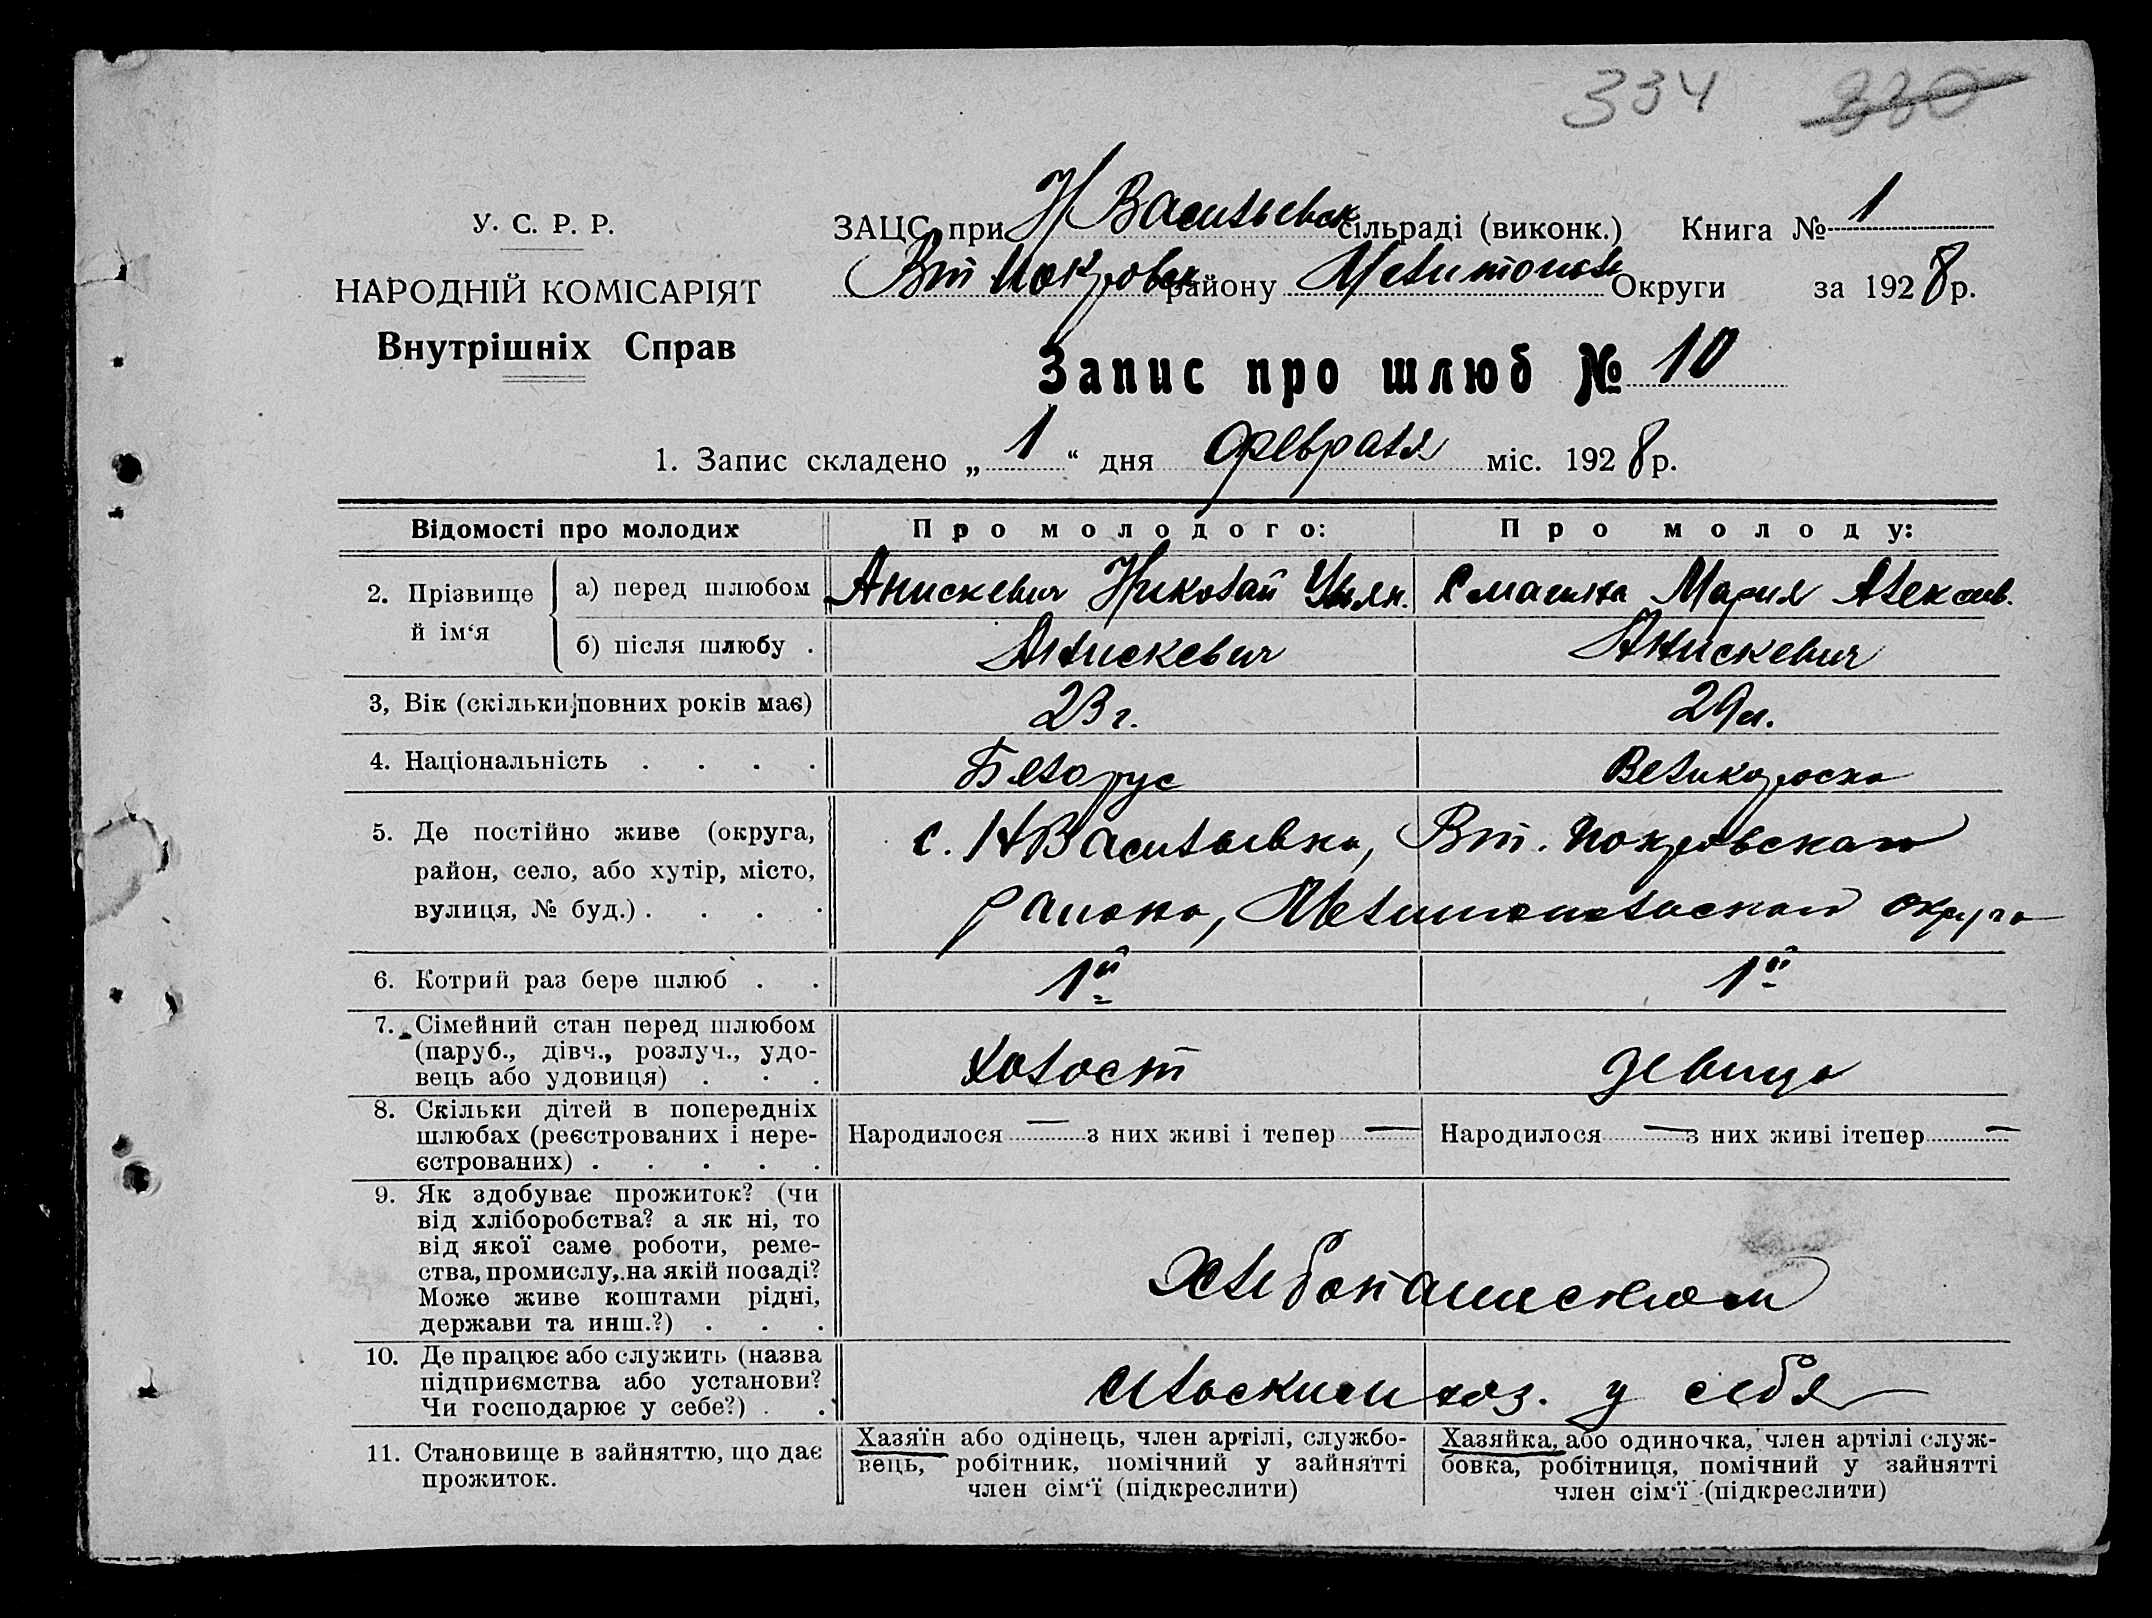 334 330
У. С. Р. Р.
НАРОДНІЙ КОМІСАРІЯТ
Внутрішніх Справ
ЗАЦС при Н Васильевск сільраді (виконк.) Книга № 1
Вт Покровск району Мелитопольск Округи за 1928 р.
Запис про шлюб № 10
1. Запис складено „ 1 “ дня февраля міс. 1928 р.
Відомості про молодих Про молодого: Про молоду:
2. Прізвище й ім‘я а) перед шлюбом Анискевич Николай Ульян. Смагина Мария Алексив.
б) після шлюбу . Анискевич Анискевич
3, Вік (скільки повних років має) 23 г. 29 л.
4. Національність . . . . Белорус Великороска
5. Де постійно живе (округа, с. Н Васильевка, Вт. Покровскаго
район, село, або хутір, місто, района, Мелитопольскаго округа
вулиця, № буд.) . . . .
6. Котрий раз бере шлюб . . 1й 1й
7. Сімейний стан перед шлюбом
(паруб., дівч., розлуч., удо- Холост девица
вець або удовиця) . . .
8. Скільки дітей в попередніх
шлюбах (реєстрованих і нере- Народилося — з них живі і тепер — Народилося — з них живі ітепер —
єстрованих) . . . . .
9. Як здобуває прожиток? (чи
від хліборобства? а як ні, то
від якої саме роботи, реме-
ства, промислу, на якій посаді? Хлебопашеством
Може живе коштами рідні,
держави та инш.?) . . .
10. Де працює або служить (назва
підприємства або установи? сельским хоз. у себя
Чи господарює у себе?) . .
11. Становище в зайняттю, що дає прожиток. Хазяїн або одінець, член артілі, службо- Хазяйка, або одиночка, член артілі служ-
вець, робітник, помічний у зайнятті бовка, робітниця, помічний у зайнятті
член сім‘ї (підкреслити) член сім‘ї (підкреслити)